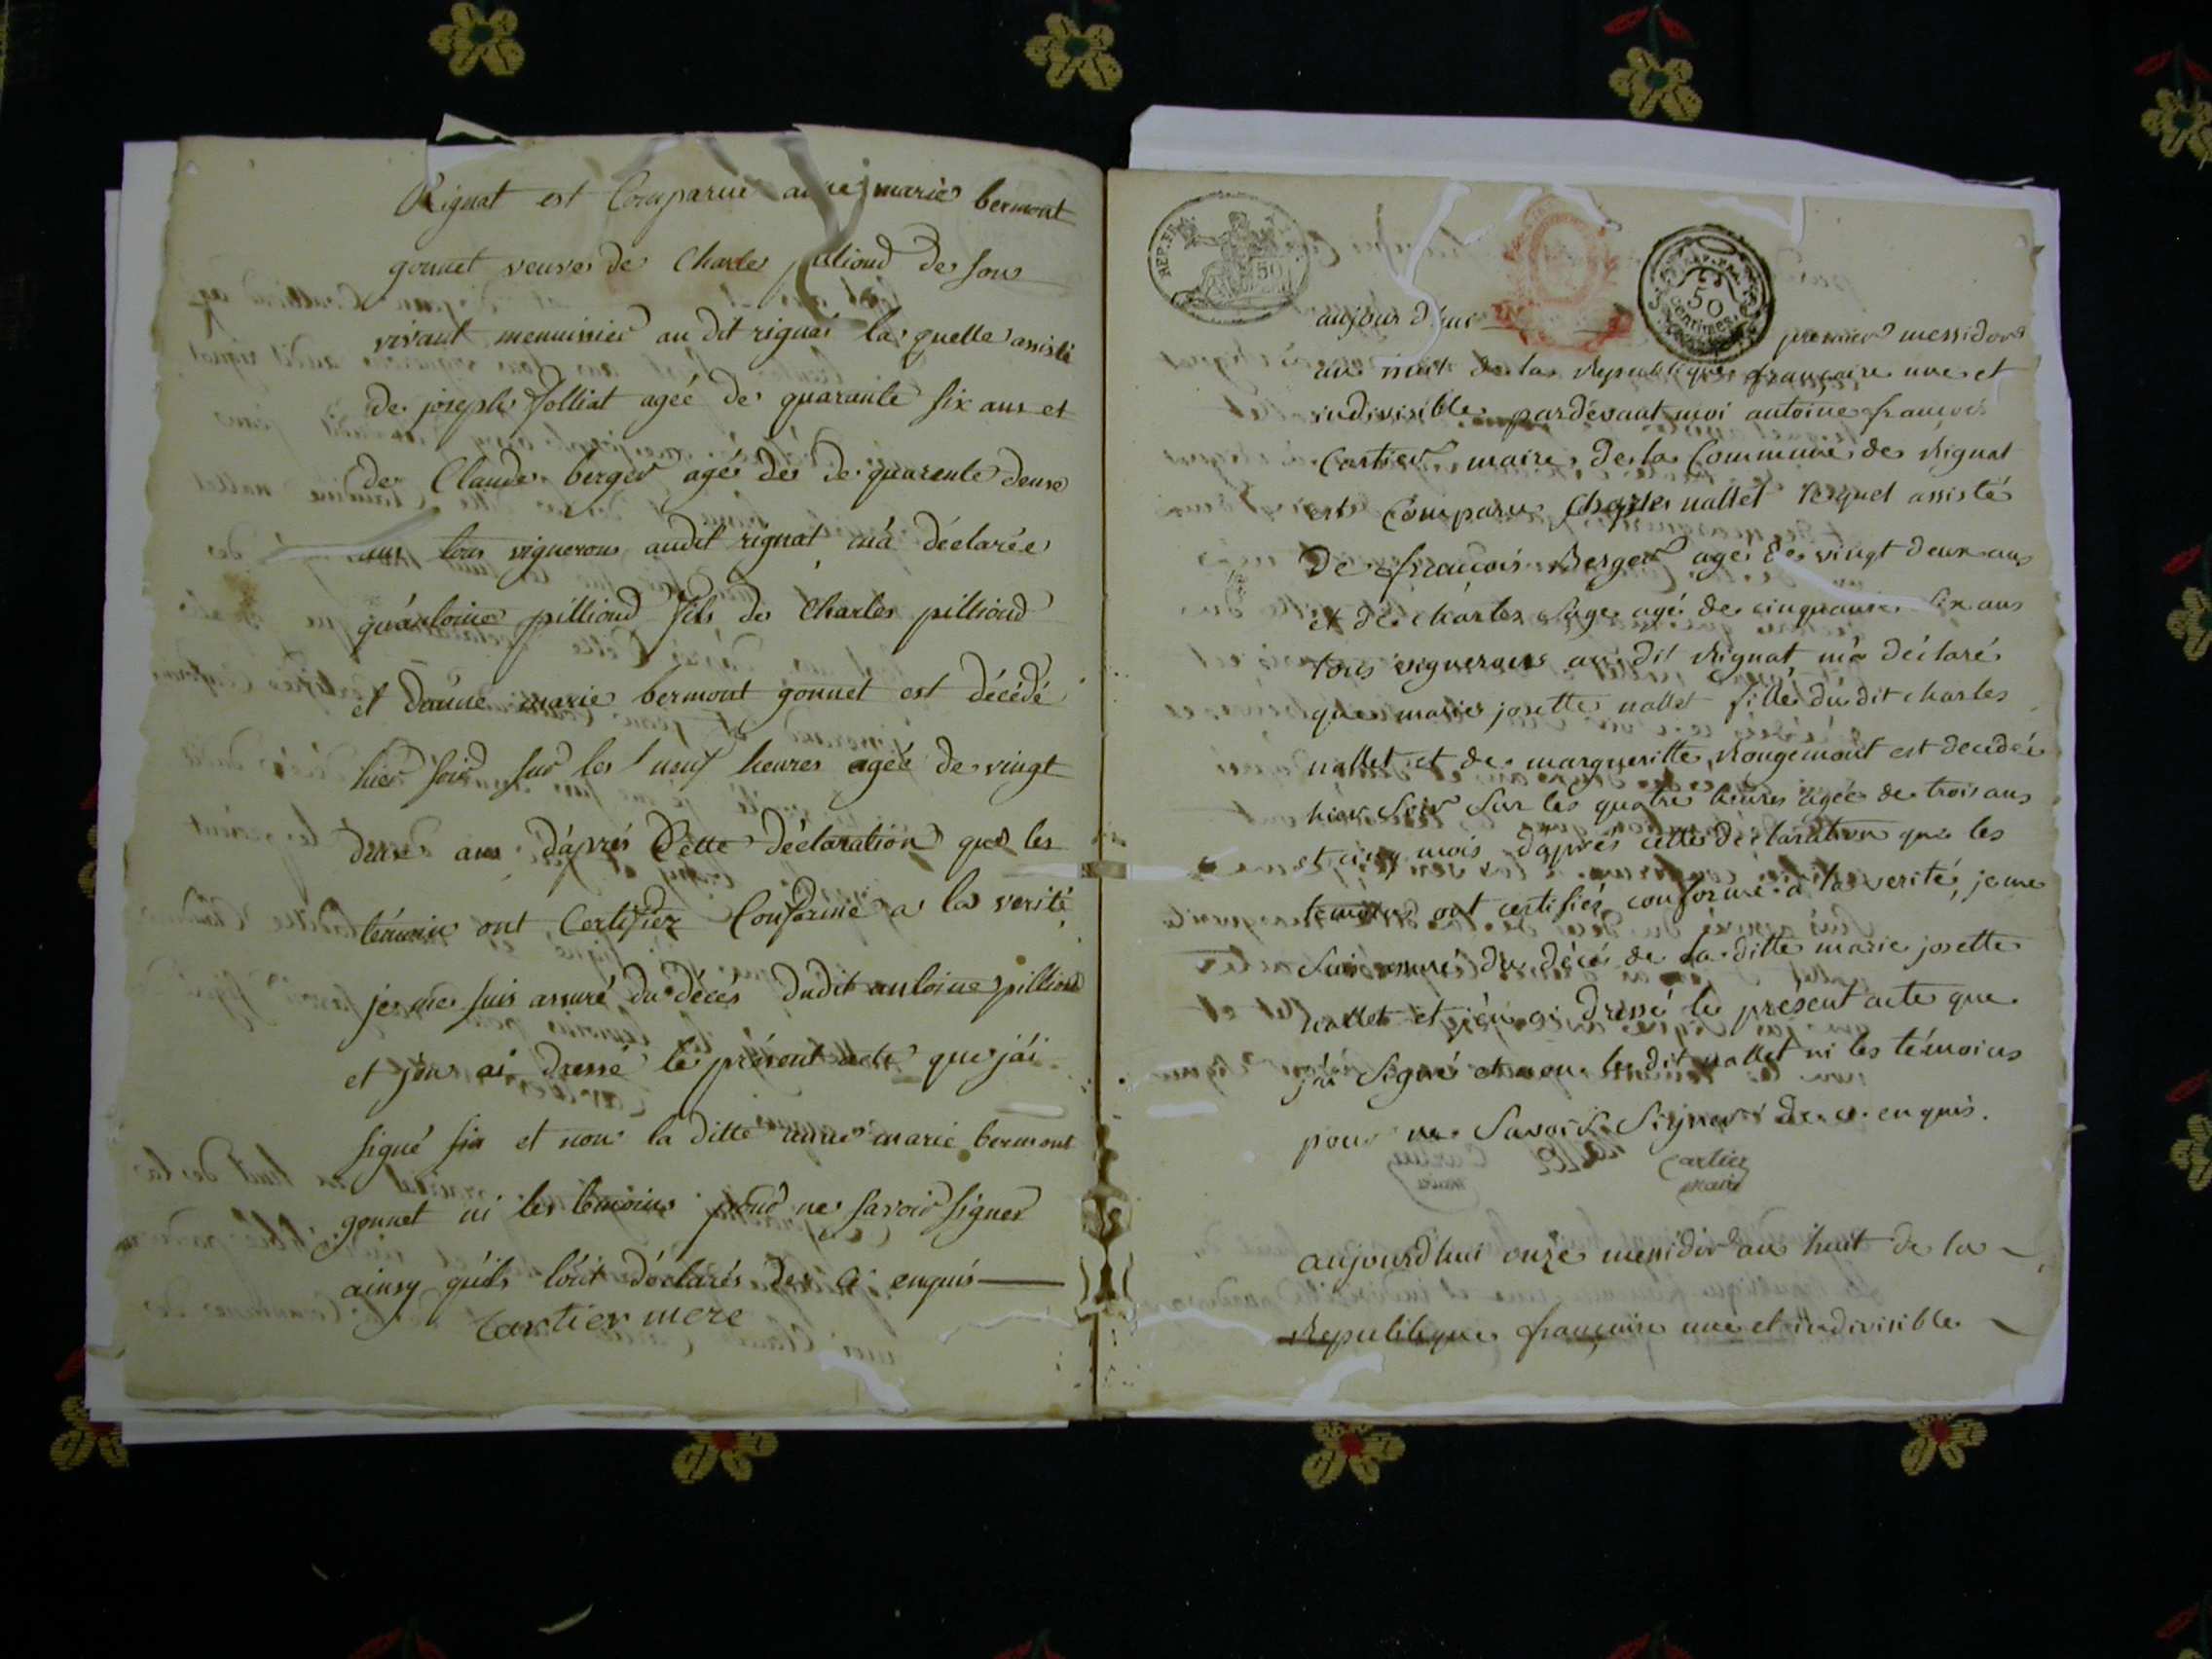 Rignat est Comparue anne marie bermont
gonnet veuve de Charle pillioud de son
vivant menuissier au dit rignat la quelle assisté
de joseph Jolliat agéé de quarante six ans et
de Claude berger agé de de quarente deuse
ans tous vignerons audit rignat m'á déclarée
qu'antoine pillioud fils de Charles pillioud
et danne marie bermont gonnet est décédé
hier soir sur les neuf heures agéé de vingt
deuse ans d'aprés Cette déclaration que les
témoin ont Certifiéz Conforme a la verité
je me suis assuré du décés dudit antoine pillioud
et j'en ai dressé le présent acte que j'ái
signé et non la ditte anne marie bermont
gonnet ni les témoins pour ne savoir signer
ainsy quils lónt déclarés de ce enquis
Cartier mere
REP. FRA. 50
REP. FRA. 50 Centimes
aujourd'hui premier messidor
an huit de la Republique française une et
indivisible pardévant moi antoine francois
Cartier maire de la Commune de Rignat
est Comparu Charles nallet lequel assisté
De francois Berger agé de vingt deux ans
et de charles Sage agé de cinquante six ans
tous vignerons au dit Rignat m'a déclaré
que marie josette nallet fille du dit charles
nallet et de margueritte Rougemont est decedée
hier soir sur les quatre heures agée de trois ans
et cinq mois d'aprés cette déclaration que les
temoins ont certifiés conforme a la verité, je me
suis assuré du décés de la ditte marie josette
nallet et j'en ai dressé le présent acte que
j'ai signé et non le dit nallet ni les témoins
pour ne Savoir Signer de ce enquis.
Cartier
maire
aujourd'hui onze messidor an huit de la
Republique française une et indivisible